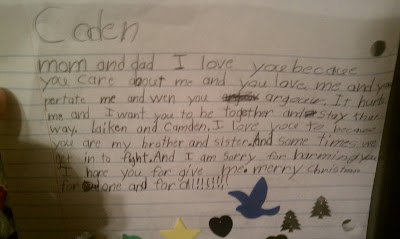 Caden
mom and dad I love you becaue
you care about me and you love me and you
pertate me and wen you argoure. It hurts
me and I want you to be together and stay that
way. laiken and Camden. I love you to because
you are my brother and sister. And some times we
get in to fight. And I am sorry for harming you
I hope you for give me. merry christmas
for one and for all!!!!!!!